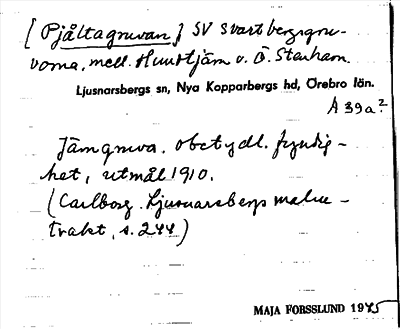 [Pjåltagruvan] SV Svartbergsgru-
vorna, mell. Hunntjärn o. Ö. Storham.
Ljusnarsbergs sn, Nya Kopparbergs hd, Örebro län.
A 39a?
Järngruva. obetydl. fyndig-
het, utmål 1910.
(Carlborg. Ljusnarsbergs malm-
trakt, s. 244)
MAJA FORSSLUND 1945